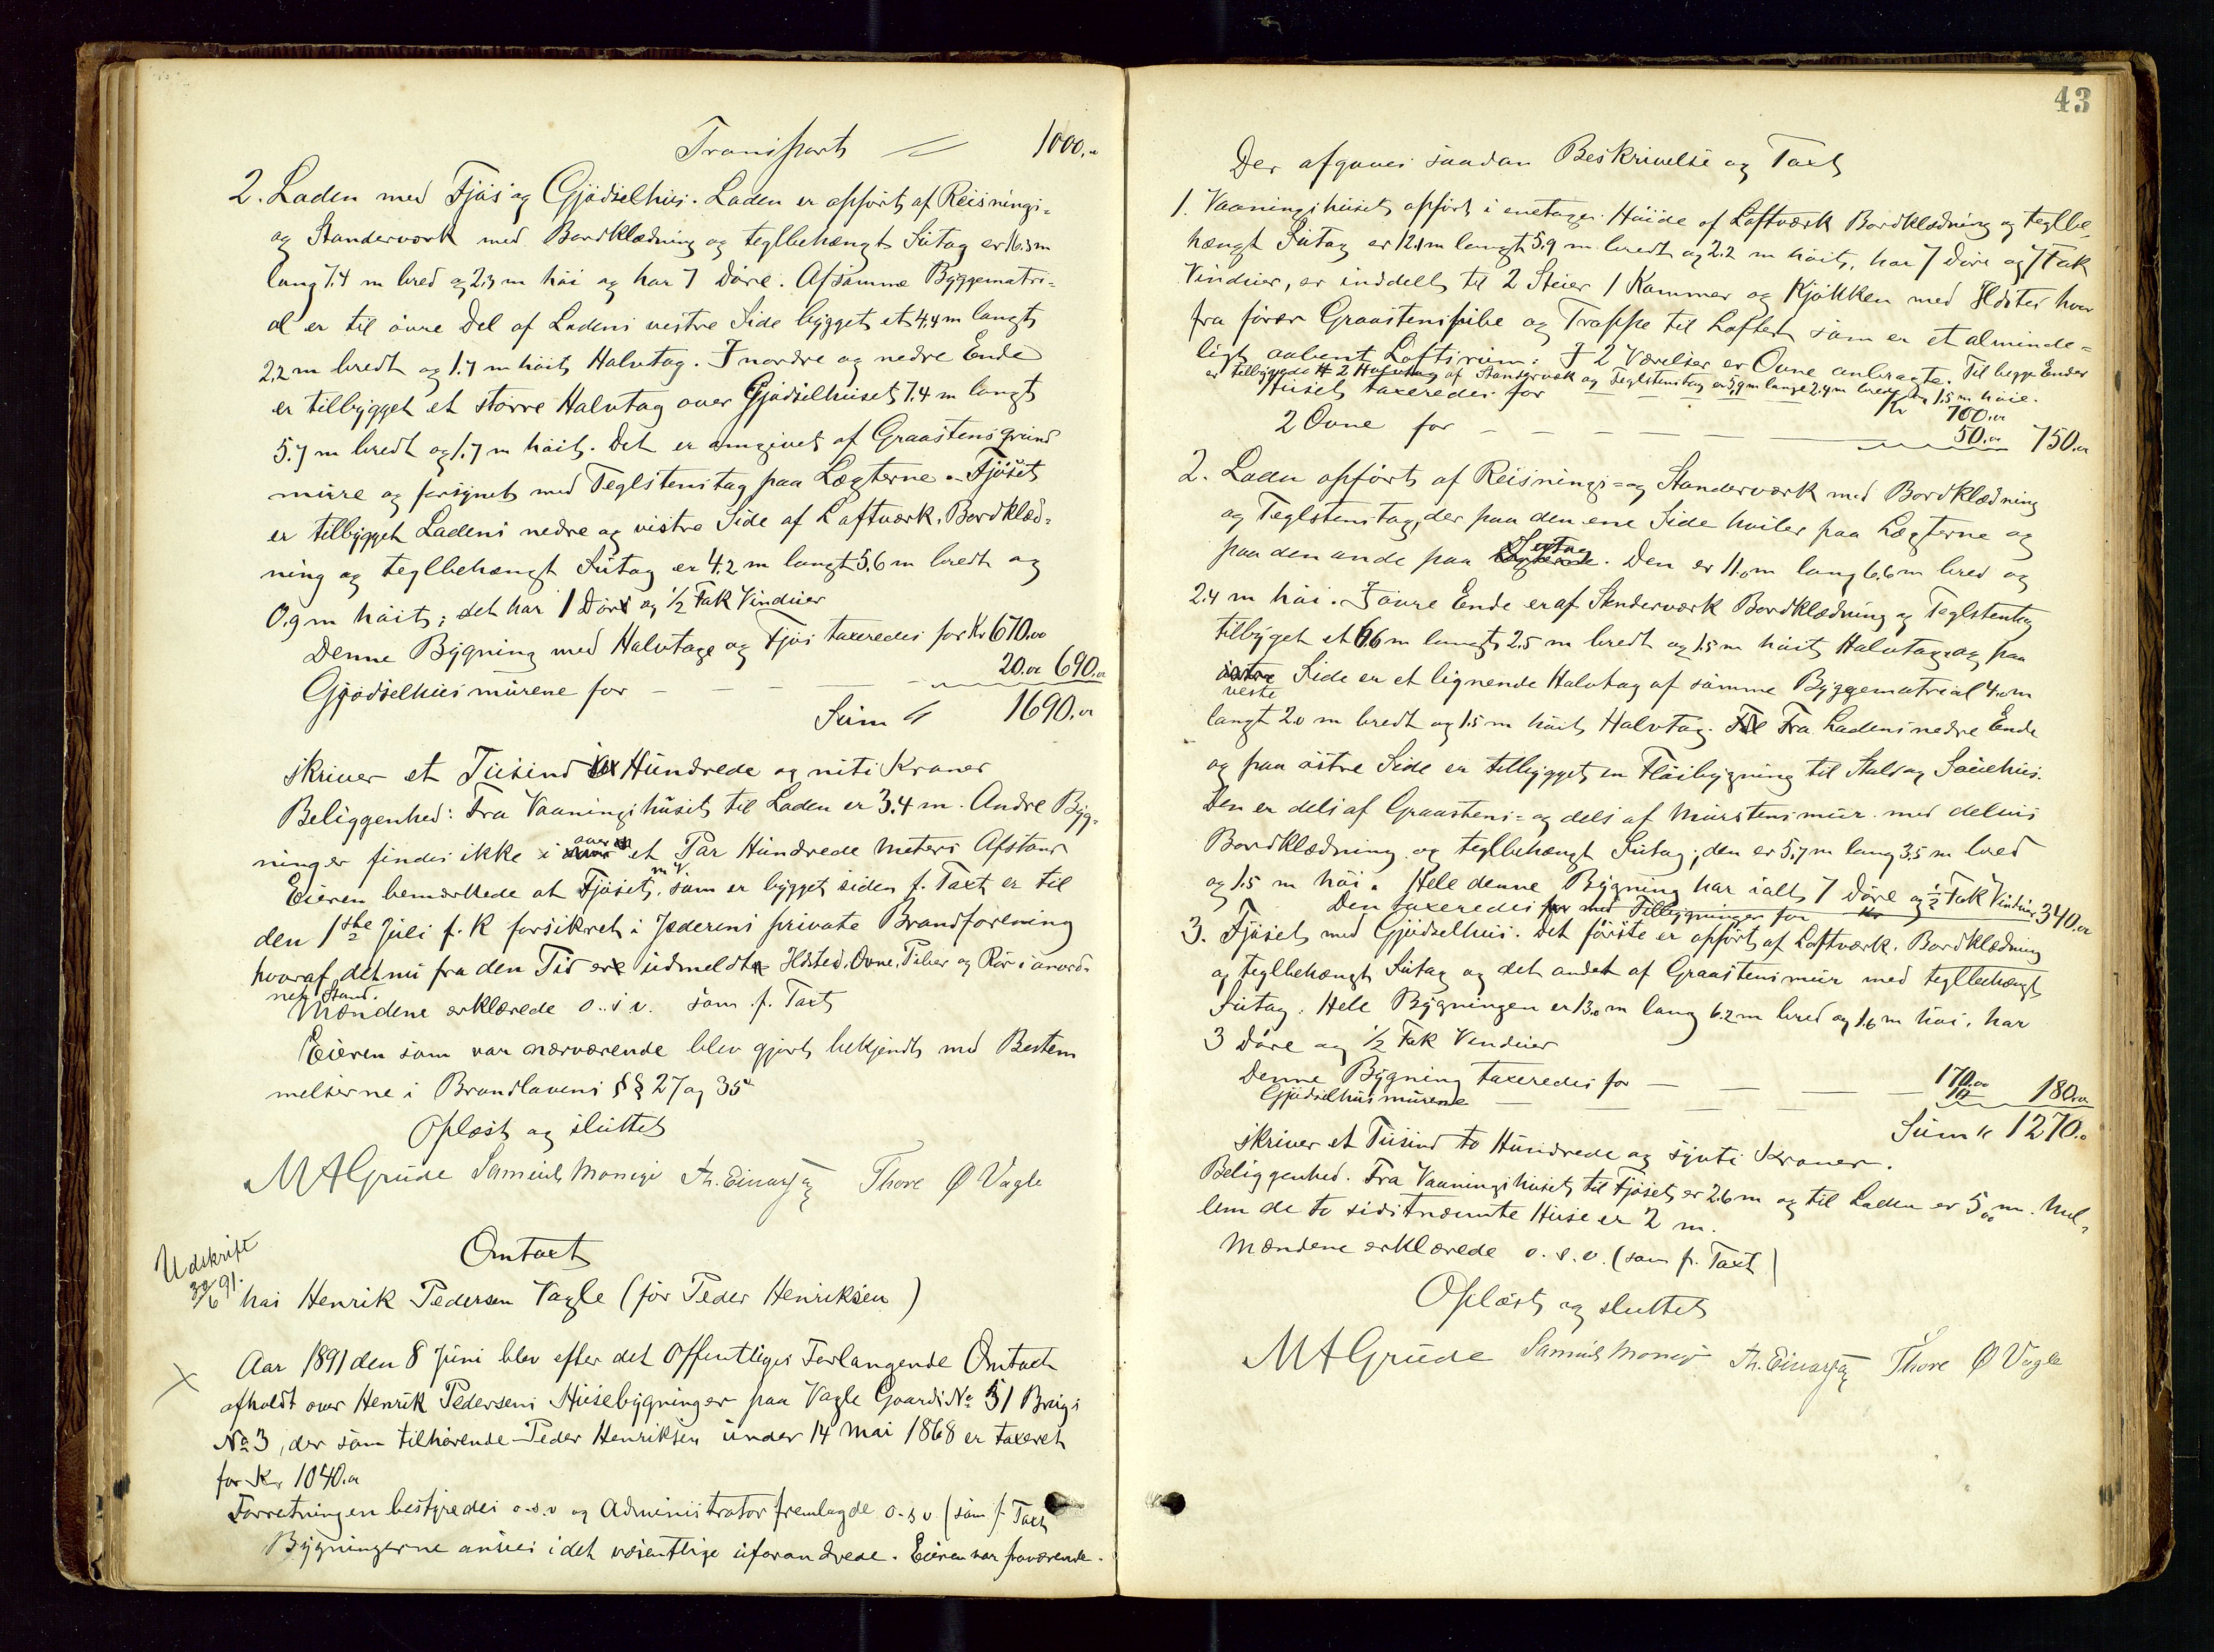 Transport 1000,"
2. Laden med Fjøs og Gjødselhus. Laden er opført af Reisnings-
og Standerværk med Bordklædning og teglbehængt Sutag er 16.3 m
lang 7.4 m bred og 2.3 m høi og har 7 Døre. Af samme Byggematri-
al er til øvre Del af Ladens vestre Side bygget et 4,4 m langt
2,2 m bredt og 1.7 m høit Halvtag. I nordre og nedre Ende
er tilbygget et større Halvtag over Gjødselhuset 7.4 m langt
5.7 m bredt og 1.7 m høit. Det er omgivet af Graastensgrund
mure og forsynet med Teglstenstag paa Lægterne. Fjøset
er tilbygget Ladens nedre og vestre Side af Laftværk, Bordklæd-
ning og teglbehængt Sutag er 4.2 m langt 5.6 m bredt og
0.9 m høit; det har 1 Dør og 1/2 Fak Vinduer
Denne Bygning med Halvtage og Fjøs taxeredes for Kr 670.00
Gjødselhusmurene for 20.00 690.00
Sum 1690.00
skriver et Tusind Hundrede og niti Kroner
Beliggenhed: Fra Vaaningshuset til Laden er 3.4 m. Andre Byg-
ninger findes ikke i over et Par Hundrede Meters Afstand
Eieren bemærkede at Fjøset, som er bygget siden f. Taxt er til
den 1ste Juli f. K forsikret i Jæderens private Brandforening
hvoraf det nu fra den Tid er udmeldt. Ildsted, Ovne, Piber og Rør i anord-
net Stand.
Mændene erklærede o.s.v. som f. Taxt
Eieren som var nærværende blev gjort bekjendt med Bestem
melserne i Brandlovens §§ 27 og 35
Oplæst og sluttet
M A Grude Samuel Monge Th. Einarsen Thore Ø Vagle
Udskrift
30/6 91.
Omtaxt
hos Henrik Pedersen Vagle (før Peder Henriksen)
Aar 1891 den 8 Juni blev efter det Offentliges Forlangende Omtaxt
afholdt over Henrik Pedersens Husebygninger paa Vagle Gaards No 51 Brugs
No 3, der som tilhørende Peder Henriksen under 14 Mai 1868 er taxeret
for Kr 1040.00
Forretningen bestyredes o.s.v og Administrator fremlagde o.s.v (som f. Taxt
Bygningerne ansees i det væsentlige uforandrede. Eieren var fraværende.
43
Der afgaves saadan Beskrivelse og Taxt
1. Vaaningshuset opført i enetages Høide af Laftværk Bordklædning og teglbe-
hængt Sutag er 12.1 m langt 5.9 m bredt og 2.2 m høit, har 7 Døre og 7 Fak
Vinduer, er inddelt til 2 Stuer 1 Kammer og Kjøkken med Ildsted hvor
fra fører Graastenspibe og Trappe til Loftet som er et alminde-
ligt aabent Loftsrum. I 2 Værelser er Ovne anbragte. Til begge Ender
er tilbyggede 2 Halvtag af Standerværk og Teglstenstag er 5.9 m lange 2.4 m brede og 1.5 m høie.
Huset taxeredes for Kr 700.00
2 Ovne for 50.00 750.00
2. Laden opført af Reisnings- og Standerværk med Bordklædning
og Teglstenstag, der paa den ene Side hviler paa Lægterne og
paa den ande paa Sutag. Den er 11.0 m lang 6.6 m bred og
2.4 m høi. I øvre Ende er af Standerværk Bordklædning og Teglstentag
tilbyget et 6.6 m langt 2.5 m bredt og 1.5 m høit Halvtag og paa
vestre Side er et lignende Halvtag af samme Byggematrial 4.0 m
langt 2.0 m bredt og 1.5 m høit Halvtag. Fra Ladens nedre Ende
og paa østre Side er tilbygget en Fløibygning til Stald og Sauehus.
Den er dels af Graastens- og dels af Murstensmur med delvis
Bordklædning og teglbehængt Sutag; den er 5.7 m lang 3.5 m bred
og 1.5 m høi. Hele denne Bygning har ialt 7 Døre og 1/2 Fak Vinduer
Den taxeredes med Tilbygninger for Kr 340.00
3. Fjøset med Gjødselhus. Det første er opført af Laftværk, Bordklædning
og teglbehængt Sutag og det andet af Graastensmur med teglbehængt
Sutag. Hele Bygningen er 13.0 m lang 6.2 m bred og 1.6 m høi, har
3 Døre og 1/2 Fak Vinduer
Denne Bygning taxeredes for 170.00
Gjødselhusmurene 10 180.00
Sum 1270.00
skriver et Tusind to Hundrede og sjuti Kroner.
Beliggenhed. Fra Vaaningshuset til Fjøset er 26 m og til Laden er 5.00 m. Mel-
lem de to sidstnævnte Huse er 2 m.
Mændene erklærede o.s.v. (som f. Taxt)
Oplæst og sluttet
M A Grude Samuel Monge Th. Einarsen Thore Ø Vagle